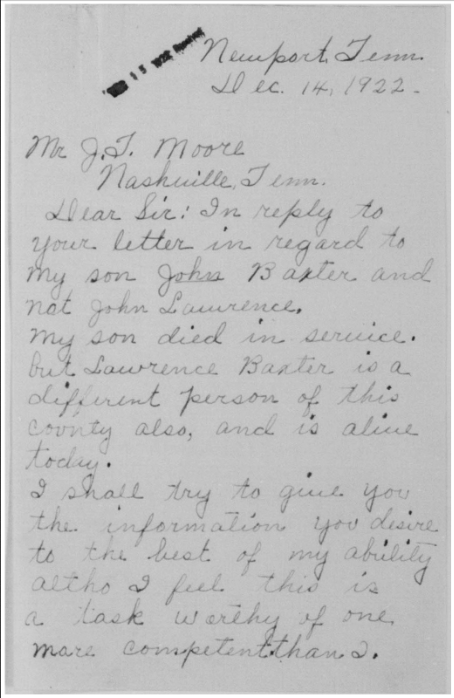 Newport, Tenn.
Dec. 14, 1922.
Mr J.T. Moore
Nashville, Tenn.
Dear Sir: In reply to
your letter in regard to
my son John Baxter and
not John Lawrence.
My son died in service.
but Lawrence Baxter is a
different person of this
county also, and is alive
today.
I shall try to give you
the information you desire
to the best of my ability
altho I feel this is
a task worthy of one
more competent than I.